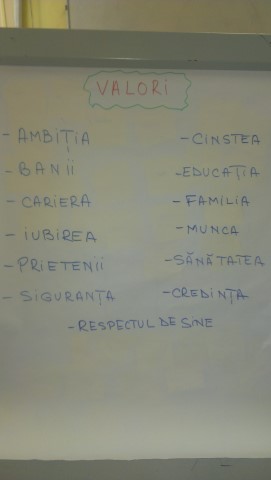 VALORi
- AMBIȚIA
- BANii
- CARiERA
- iUBiREA
- PRiETENii
- SiGURANȚA
- CiNSTEA
- EDUCAȚiA
- FAMiLiA
- MUNCA
- SĂNĂTATEA
- CREDiNȚA
- RESPECTUL DE SiNE